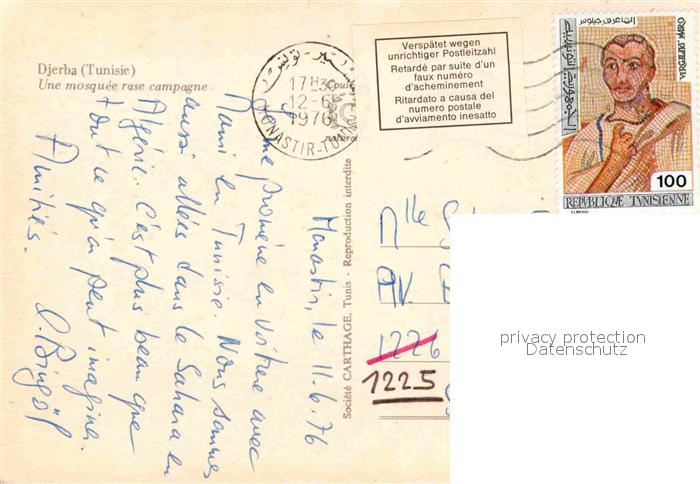 Djerba (Tunisie)
Une mosquée rase campagne
Monastir, le 11.6.76
promène en voiture avec
Mami en Tunisie. Nous sommes
aussi allées dans le Sahara en
Algérie. C'est plus beau que
tout ce qu'on peut imaginer.
Amitiés.
Société CARTHAGE, Tunis - Reproduction interdite
17H30
12-6
1976
MONASTIR-TUNISIE
Verspätet wegen
unrichtiger Postleitzahl
Retardé par suite d'un
faux numéro
d'acheminement
Ritardato a causa del
numero postale
d'avviamento inesatto
VERGILIUS MARO
100
REPUBLIQUE TUNISIENNE
الجمهورية التونسية
Mlle
AV.
1226
1225
privacy protection
Datenschutz